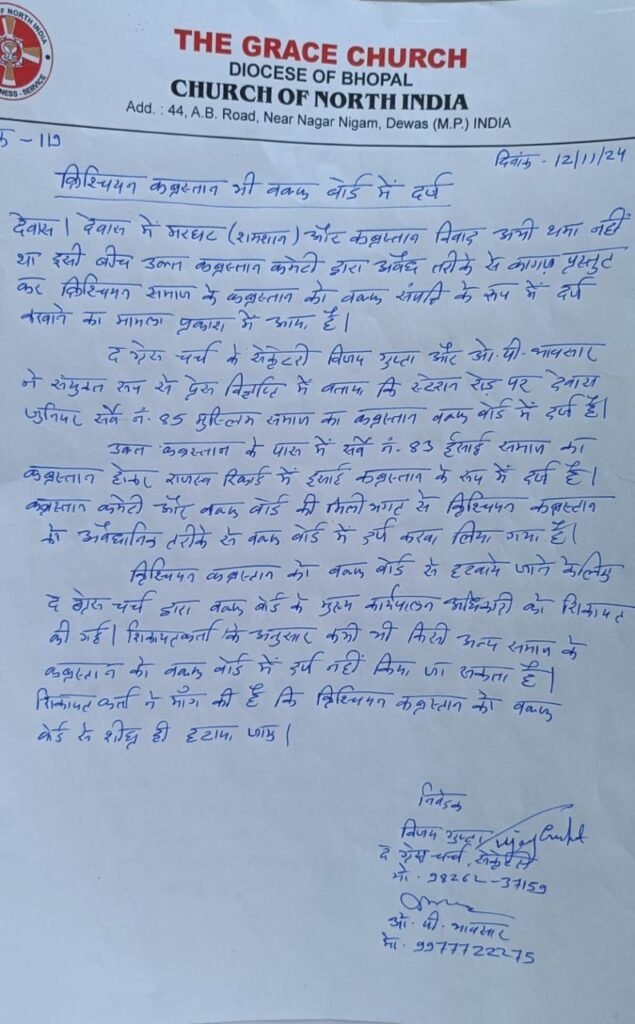 OF NORTH INDIA
NESS - SERVICE
THE GRACE CHURCH
DIOCESE OF BHOPAL
CHURCH OF NORTH INDIA
Add. : 44, A.B. Road, Near Nagar Nigam, Dewas (M.P.) INDIA
क - 119
दिनांक - 12/11/24
क्रिश्चियन कब्रस्तान भी वक्फ बोर्ड में दर्ज
देवास। देवास में मरघट (शमशान) और कब्रस्तान विवाद अभी थमा नहीं
था इसी बीच उक्त कब्रस्तान कमेटी द्वारा अवैध तरीके से कागज प्रस्तुत
कर क्रिश्चियन समाज के कब्रस्तान को वक्फ संपत्ति के रूप में दर्ज
करवाने का मामला प्रकाश में आया है।
द ग्रेस चर्च के सेक्रेटरी विजय गुप्ता और ओ.पी. भावसार
ने संयुक्त रूप से प्रेस विज्ञप्ति में बताया कि स्टेशन रोड़ पर देवास
जुनियर सर्वे नं- 85 मुस्लिम समाज का कब्रस्तान वक्फ बोर्ड में दर्ज है।
उक्त कब्रस्तान के पास में सर्वे नं- 83 ईसाई समाज का
कब्रस्तान होकर राजस्व रिकार्ड में ईसाई कब्रस्तान के रूप में दर्ज है।
कब्रस्तान कमेटी और वक्फ बोर्ड की मिली भगत से क्रिश्चियन कब्रस्तान
को अवैधानिक तरीके से वक्फ बोर्ड में दर्ज करवा लिया गया है।
क्रिश्चियन कब्रस्तान को वक्फ बोर्ड से हटवाये जाने के लिए
द ग्रेस चर्च द्वारा वक्फ बोर्ड के मुख्य कार्यपालन अधिकारी को शिकायत
की गई। शिकायतकर्ता के अनुसार कभी भी किसी अन्य समाज के
कब्रस्तान को वक्फ बोर्ड में दर्ज नहीं किया जा सकता है।
शिकायत कर्ता ने माँग की है कि क्रिश्चियन कब्रस्तान को वक्फ
बोर्ड से शीघ्र ही हटाया जाए।
निवेदक
विजय गुप्ता Vijay Gupta
द ग्रेस चर्च, सेक्रेटरी
मो. 98262-37159
ओ. पी. भावसार
मो. 9977722275